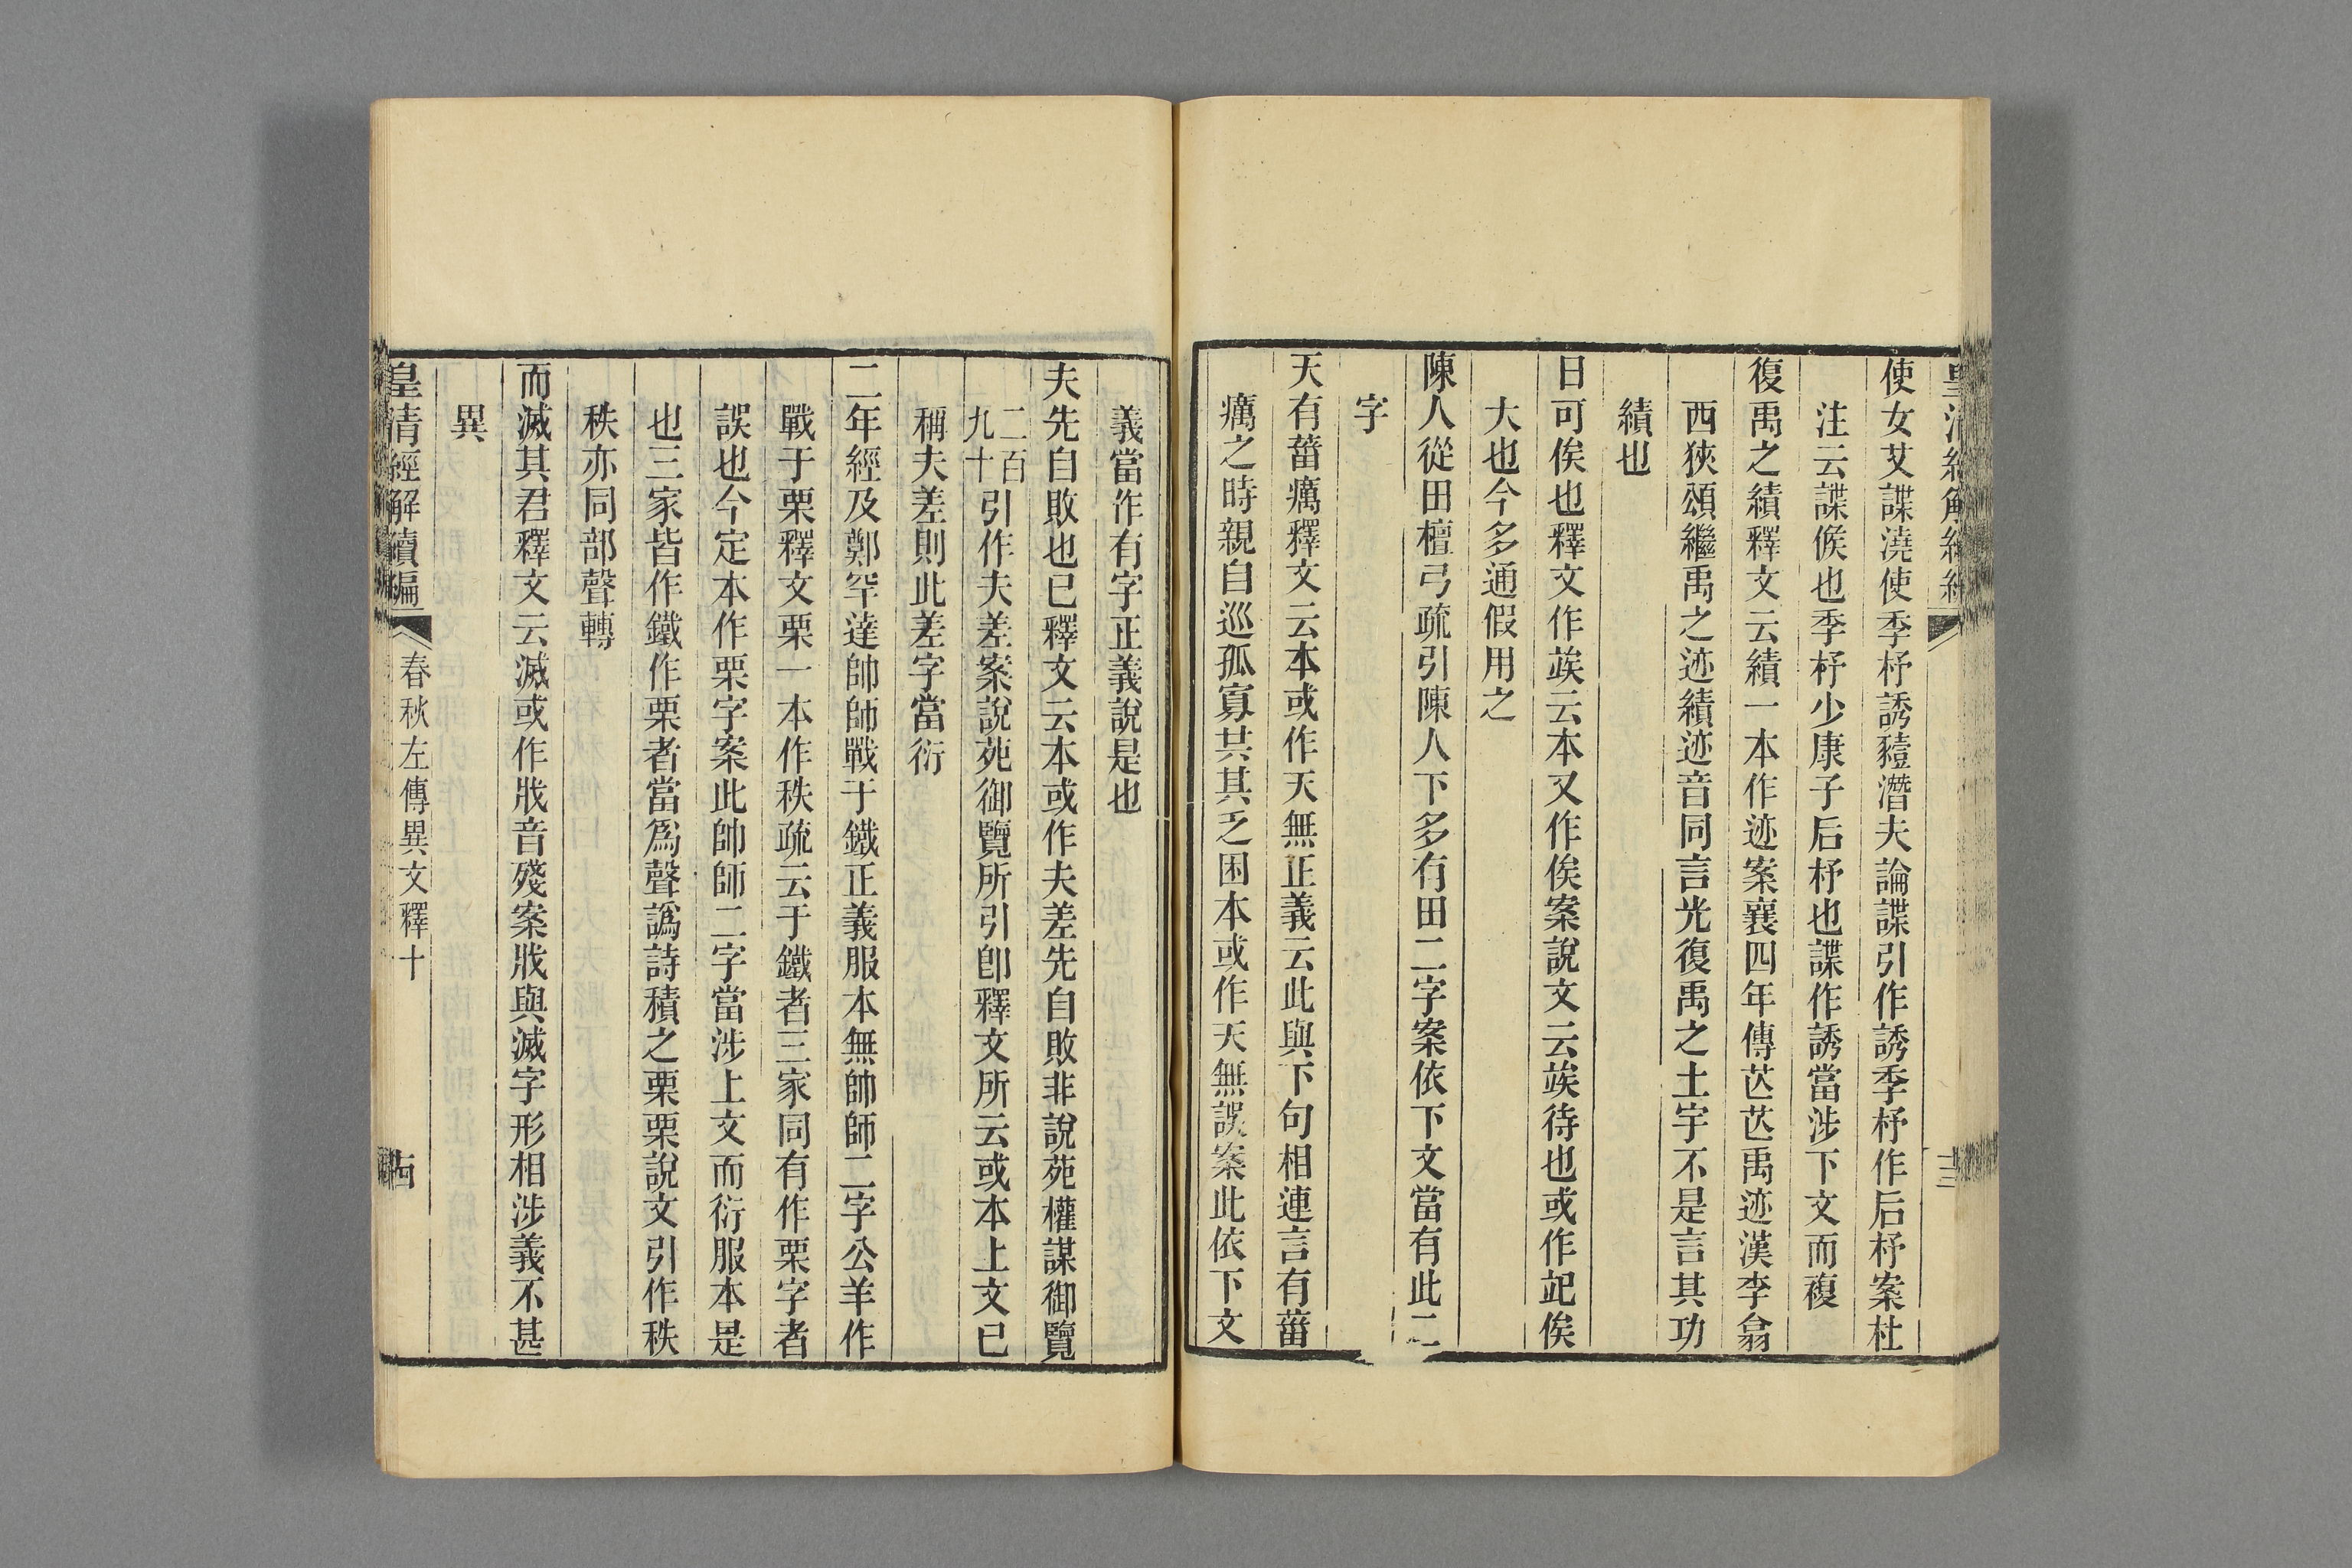 使女艾諜澆使季杼誘豷潛夫論諜引作誘季杼作后杼案杜
注云諜候也季杼少康子后杼也諜作誘當涉下文而複
復禹之績釋文云績一本作迹案襄四年傳芒芒禹迹漢李翕
西狹頌繼禹之迹績迹音同言光復禹之土宇不是言其功
績也
日可俟也釋文作竢云本又作俟案說文云竢待也或作𥏳俟
大也今多通假用之
陳人從田檀弓疏引陳人下多有田二字案依下文當有此二
字
天有菑癘釋文云本或作天無正義云此與下句相連言有菑
癘之時親自巡孤寡共其乏困本或作天無誤案此依下文
十三
義當作有字正義說是也
夫先自敗也已釋文云本或作夫差先自敗非說苑權謀御覽
二百九十引作夫差案說苑御覽所引卽釋文所云或本上文已
稱夫差則此差字當衍
二年經及鄭罕達帥師戰于鐵正義服本無帥師二字公羊作
戰于栗釋文栗一本作秩疏云于鐵者三家同有作栗字者
誤也今定本作栗字案此帥師二字當涉上文而衍服本是
也三家皆作鐵作栗者當爲聲譌詩積之栗栗說文引作秩
秩亦同部聲轉
而滅其君釋文云滅或作戕音殘案戕與滅字形相涉義不甚
異
皇清經解續編
春秋左傳異文釋十
十四